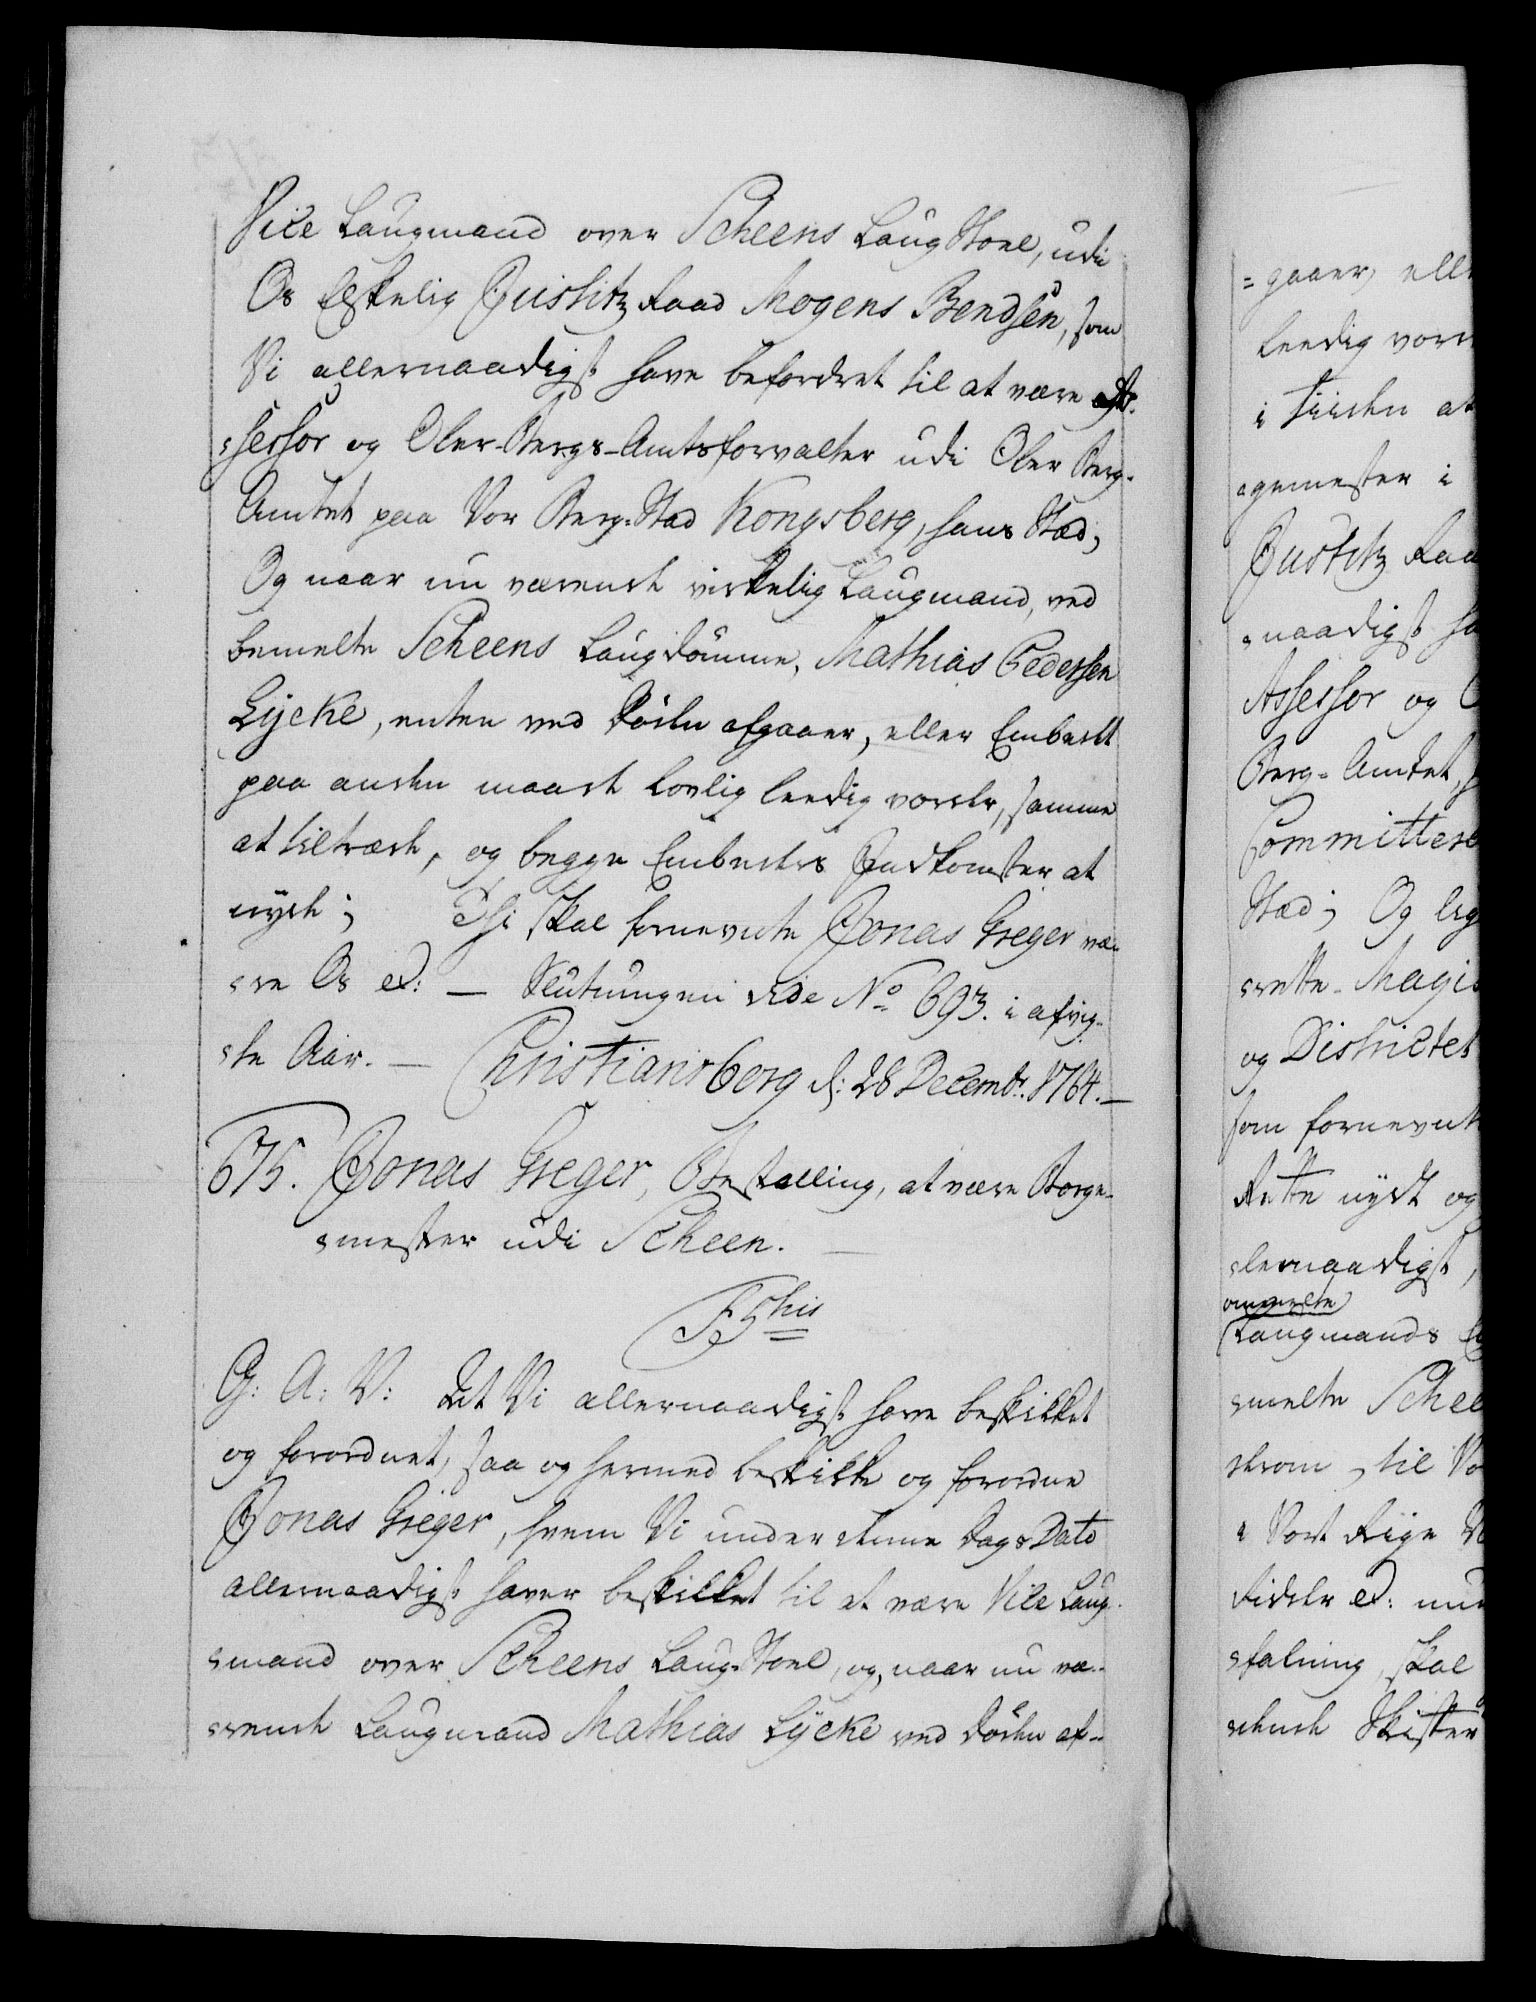 Vice Laugmand over Scheens Laug Stoel, udi
Os Elskelig Justitz Raad Mogens Bendsen, som
Vi allernaadigst have befordret til at være As-
sessor og Ober-Bergs-Amtsforvalter udi Ober Berg-
Amtet paa Vor Berg-Stad Kongsberg, hans Stæd;
Og naar nu værende virkelig Laugmand, ved
bemelte Scheens Laugdømme, Mathias Pedersen
Lycke, enten ved Døden afgaaer, eller Embedet
paa anden maade lovlig leedig vorder, samme
at tiltræde, og begge Embeders Indkomster at
nyde; Thi skal fornevnte Jonas Geger væ-
re Os &: — Slutningen vide No 693. i afvig-
te Aar. — Christiansborg d: 28 Decembr. 1764. —
675. Jonas Geger, Bestalling, at være Borge-
mester udi Scheen. —
F 5this
G: A: V: At Vi allernaadigst have beskikket
og forordnet, saa og hermed beskikke og forordne
Jonas Geger, hvem Vi under denne Dags Dato
allernaadigst haver beskikket til at være Vice Laug-
mand over Scheens Laug-Stoel, og, naar nu væ-
rende Laugmand Mathias Lycke ved Døden af-
gaaer, elle
leedig vor
i Tiiden at
gemester i
Justitz Raa
naadigst ha
Assessor og
Berg-Amtet,
Committere
Stæd; Og lig
rette Magis
og Districtet
som fornevnt
Rette nydt og
lernaadigst,
ommelte
Laugmands
melte Schee
drom, til Vo
Vort Rige
Sider &: un
falning, skal
dende Skifter